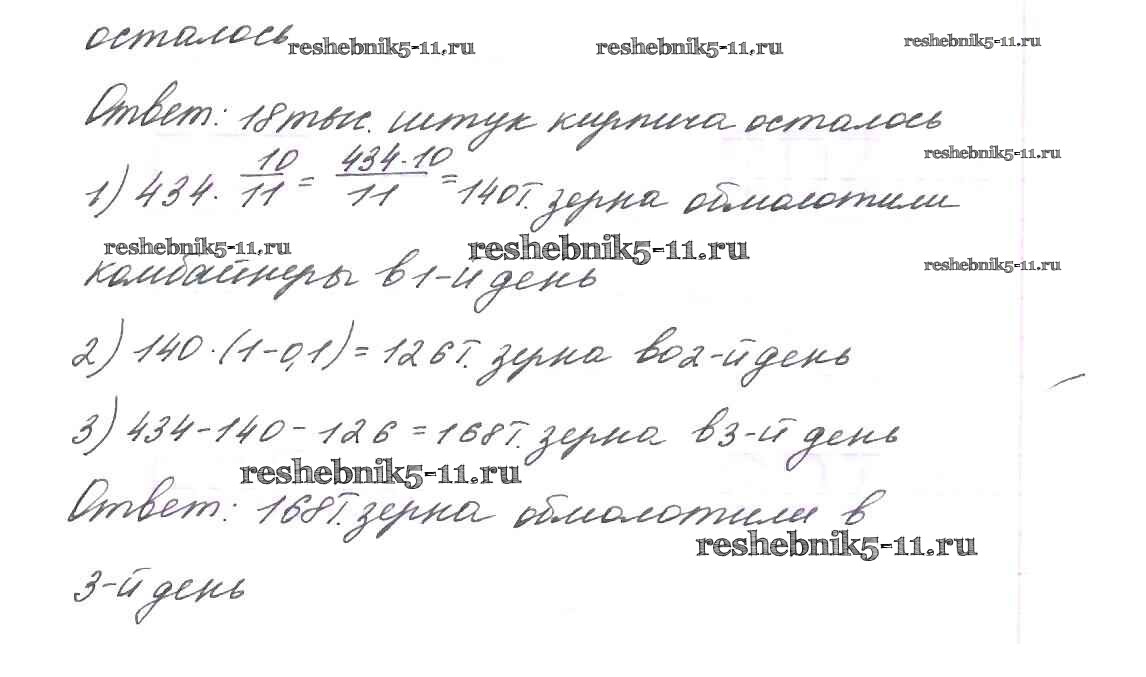 осталось reshebnik5-11.ru reshebnik5-11.ru reshebnik5-11.ru
Ответ: 18 тыс. штук кирпича осталось
reshebnik5-11.ru
1) 434 · 10/11 = 434·10/11 = 140т. зерна обмолотили
reshebnik5-11.ru reshebnik5-11.ru reshebnik5-11.ru
комбайнеры в 1-й день
2) 140 · (1-0,1) = 126т. зерна во 2-й день
3) 434-140-126 = 168т. зерна в 3-й день
reshebnik5-11.ru
Ответ: 168т. зерна обмолотили в
reshebnik5-11.ru
3-й день